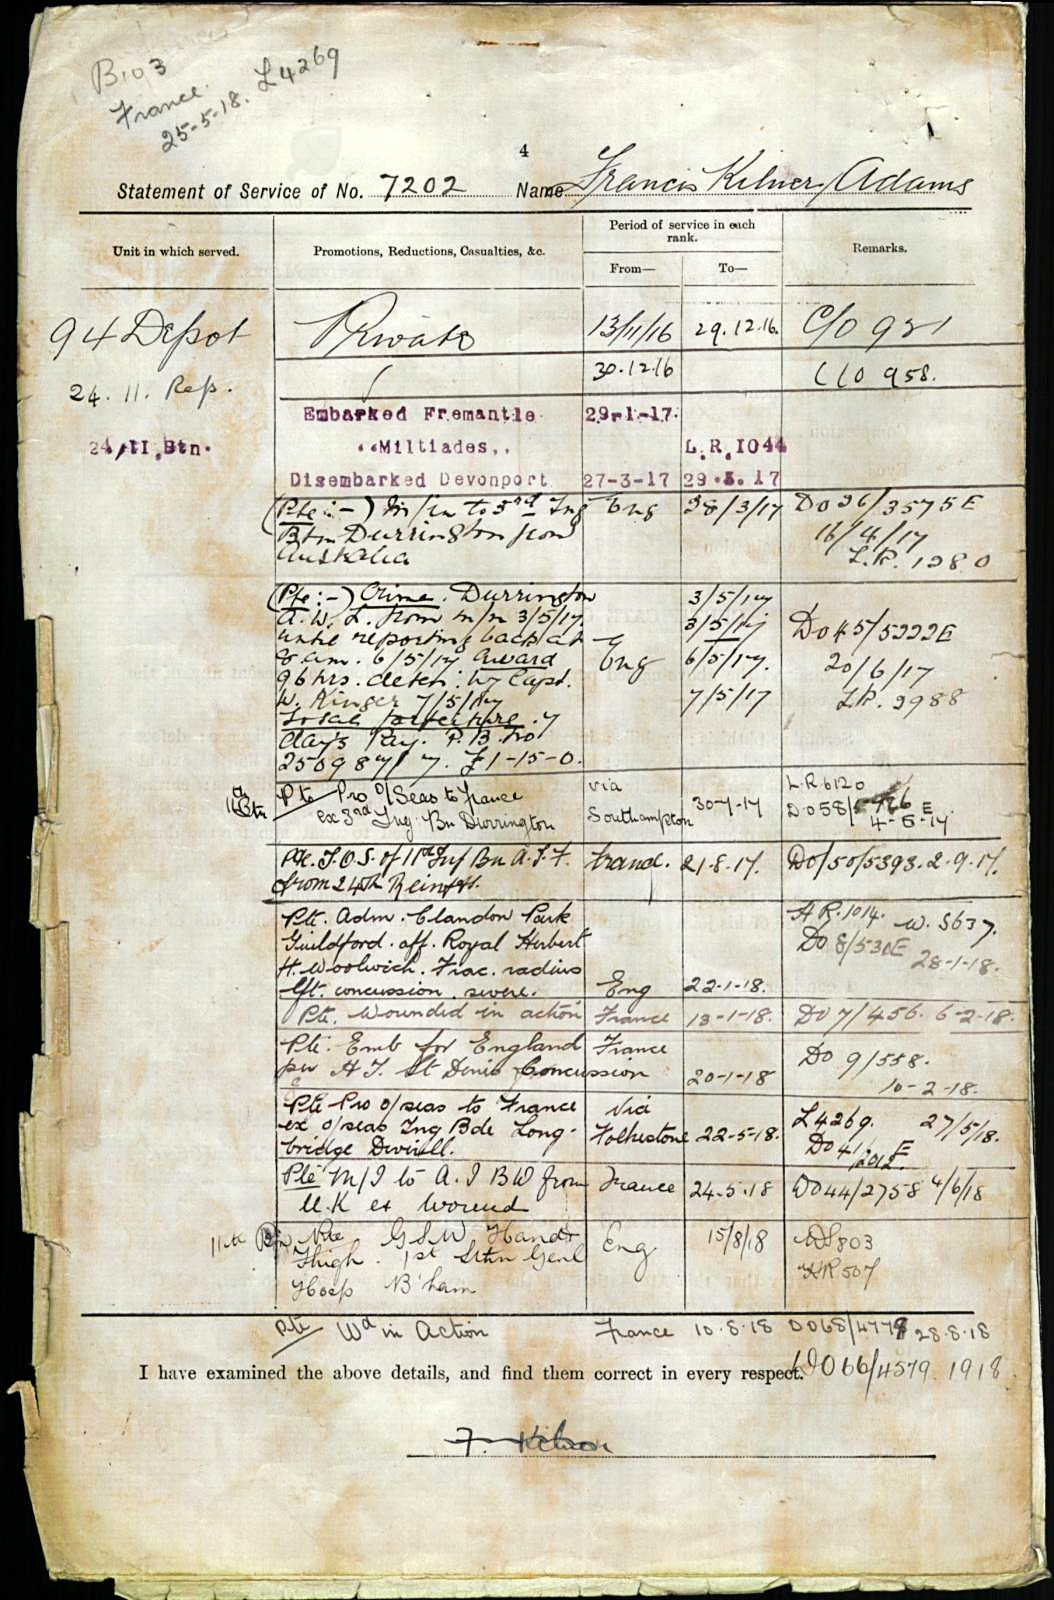 B103
France.
25-5-18. L4269
4
Statement of Service of No. 7202 Name Francis Kilner Adams
Unit in which served.
Promotions, Reductions, Casualties, &c.
Period of service in each rank.
From—
To—
Remarks.
94 Depot Private 13/11/16 29.12.16. C/O 931
24. 11. Rep. 30.12.16 C/O 958.
Embarked Fremantle 29-1-17.
24/11 Btn. "Miltiades,, L.R.1044
Disembarked Devonport 27-3-17 29.3.17
(Pte :-) M/in to 3rd Tng Eng 28/3/17 Do 26/3575E
Btn Durrington from 16/4/17
Australia L.R. 1280
(Pte :-) Crime. Durrington 3/5/17
A.W.L. from m/n 3/5/17 3/5/17 Do 45/5222E
until reporting back at
8 am. 6/5/17 Award Eng 6/5/17. 20/6/17
96 hrs. deten: by Capt.
W. Ringer 7/5/17 7/5/17 LR. 2988
Total forfeiture. 7
days Pay. P.B. No
250987/ 7. £1-15-0.
11th Btn Pte Pro O/Seas to France via L.R 6120
ex 3rd Tng. Bn Durrington Southampton 30-7-17 Do 58/ E
4-8-17
Pte. T.O.S. of 11th Inf Bn A.I.F. France. 21-8-17. Do/50/5393. 2-9-17.
from 24th Reinfts.
Pte. Adm. Clandon Park HR.1014. W. 5637.
Guildford. aff. Royal Herbert Do 8/530E
H. Woolwich. Frac. radius 28-1-18.
lft. concussion. severe. Eng 22-1-18.
Pte. Wounded in action France 13-1-18. Do 7/456. 6-2-18.
Pte. Emb for England France Do 9/558.
per H.T. St Denis Concussion 20-1-18 10-2-18.
Pte Pro o/seas to France via L4269. 27/5/18.
ex o/seas Tng Bde Long- Folkestone 22-5-18. Do 41/2012. E
bridge Deverill.
Pte M/I to A.I.B.D from France 24.5.18 Do 44/2758 4/6/18
U.K ex Wound
11th Bn Pte GSW Hand & Eng 15/8/18 803
Thigh. 1st Sthn Genl HR507
Hosp B'ham
Pte Wd in Action France 10.8.18 Do68/4778 28.8.18
I have examined the above details, and find them correct in every respect. DO 66/4579. 1918